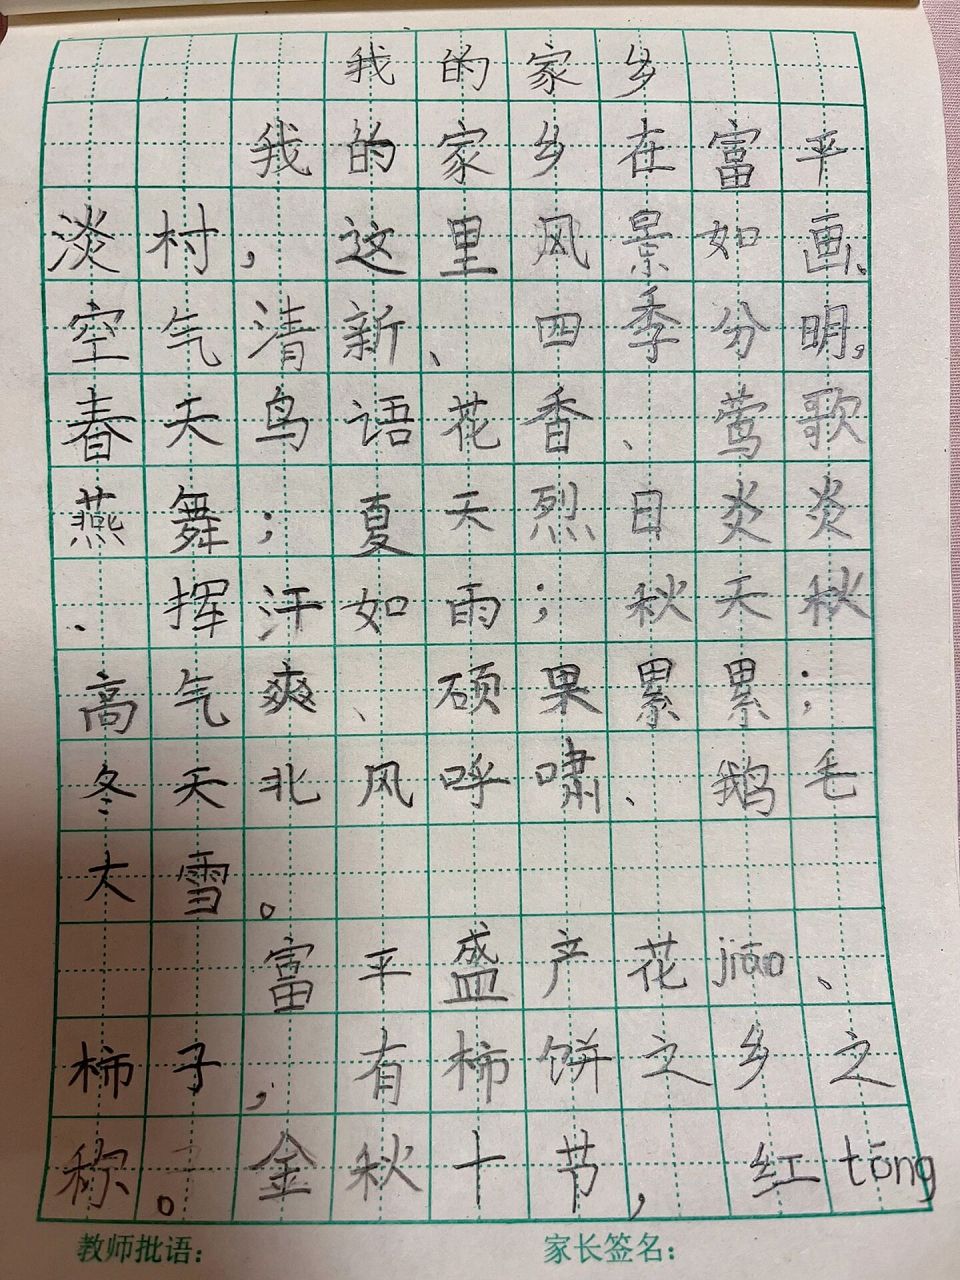 我的家乡
我的家乡在富平
淡村，这里风景如画、
空气清新、四季分明。
春天鸟语花香、莺歌
燕舞；夏天烈日炎炎
、挥汗如雨；秋天秋
高气爽、硕果累累；
冬天北风呼啸、鹅毛
大雪。
富平盛产花jiāo、
柿子，有柿饼之乡之
称。金秋十节，红tōng
教师批语：
家长签名：